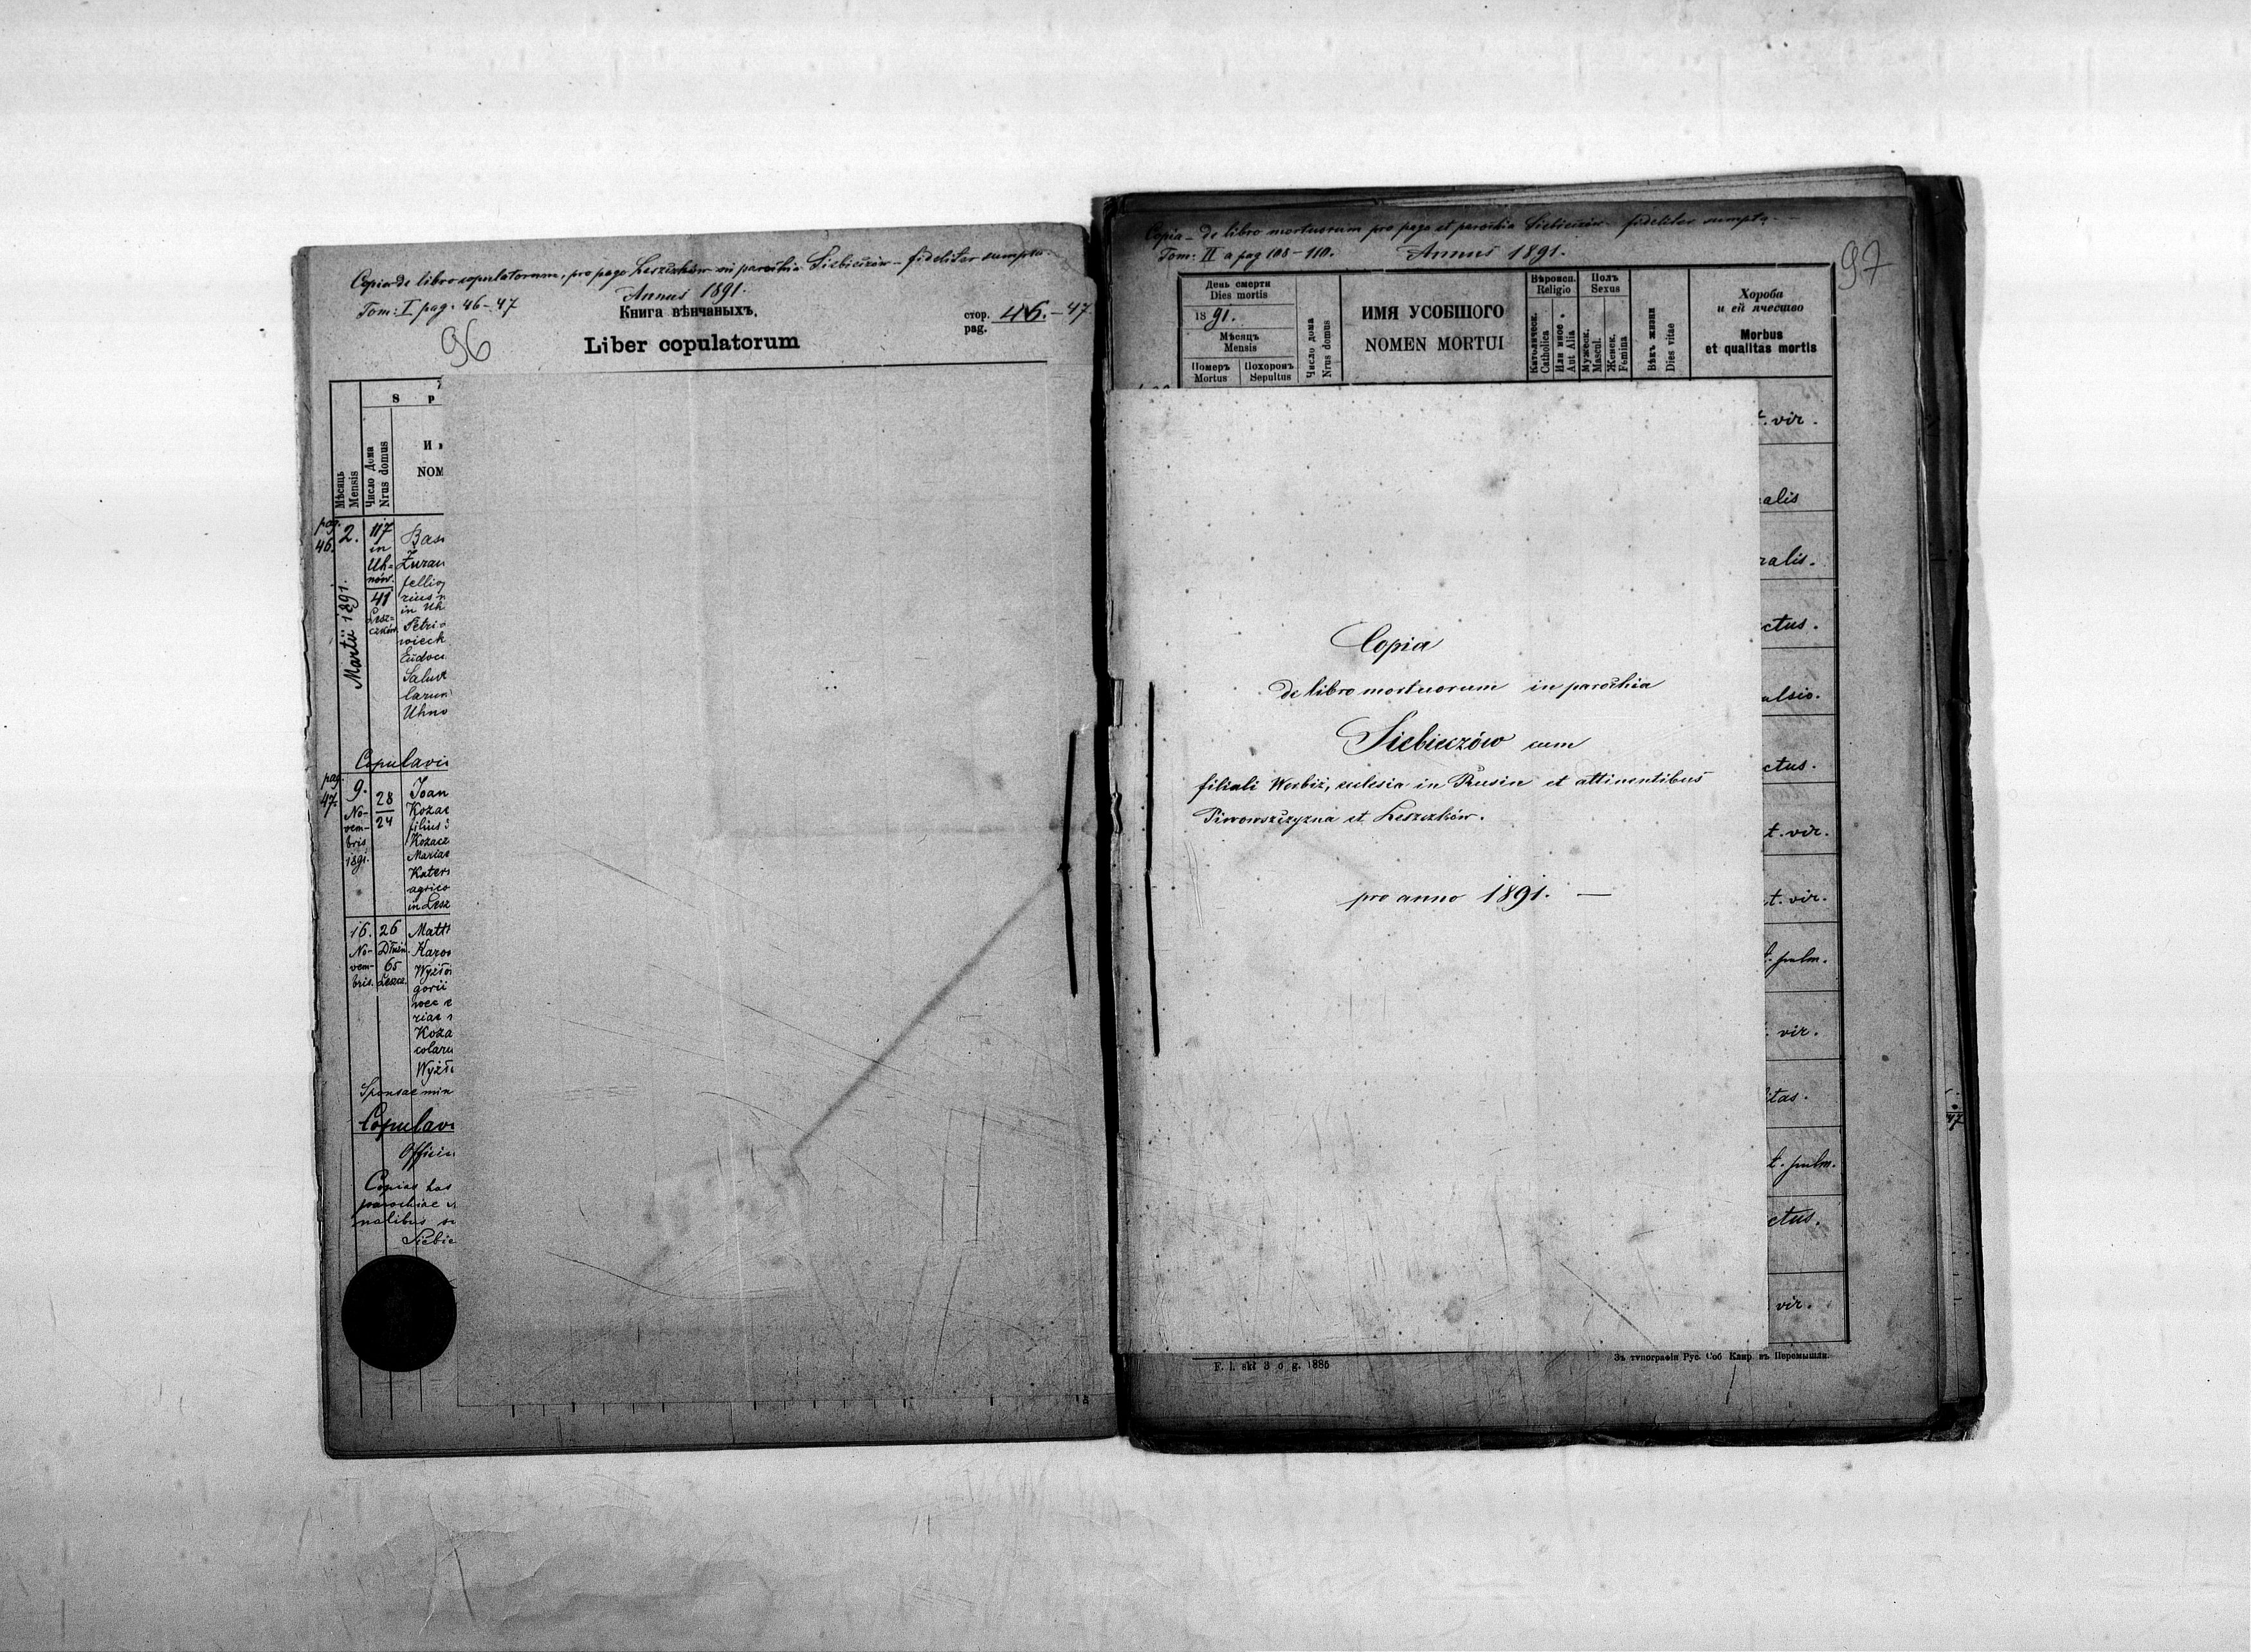 Copia de libro copulatorum, pro pago Leszczków in parochia Siebieczów – fideliter sumpta.
Annus 1891.
Tom: I pag. 46–47
Книга вѣнчаныхъ,
стор. pag. 46.–47
96
Liber copulatorum
S p
И
NOM
Мѣсяць Mensis
Число Дома Nrus domus
pag. 46.
2.
Martii 1891.
117
in
Uh=
nów.
41
Lesz=
czków
Bas
Żuraw
fellig
rius
in Uh
Petri
wiech
Eudoc
Saluk
larum
Uhno
Copulavi
pag. 47.
9.
No-
vem-
bris
1891.
28
24
Joan
Kozac
filius
Kozacz
Marias
Kater
agrico
in Lesz
16.
No-
vem-
bris.
26
65
Leszcz.
Matt
Karo
gorii
Koza
colaru
Sponsae min
Copulavi
Offici
Copias has
parochiae
nalibus
Siebie
Copia – de libro mortuorum pro pago et parochia Siebieczów – fideliter sumpta. –
Tom: II a pag 108–110. Annus 1891.
97
День смерти
Dies mortis
1891.
Мѣсяцъ
Mensis
Померъ
Mortus
Похоронъ
Sepultus
Число дома
Nrus domus
ИМЯ УСОБШОГО
NOMEN MORTUI
Вѣроисп.
Religio
Католическ.
Catholica
Или иное
Aut Alia
Полъ
Sexus
Мужеск.
Mascul.
Женск.
Femina
Вѣкъ жизни
Dies vitae
Хороба
и ей ячество
Morbus
et qualitas mortis
t. vir.
alis
ralis.
ctus.
ulsio.
ctus.
t. vir.
t. vir.
t. pulm.
vir.
itas.
t. pulm.
ctus.
vir.
Copia
de libro mortuorum in parochia
Siebieczów cum
filiali Worbiż, eclesia in Rusin et attinentibus
Piwowszczyzna et Leszczków.
pro anno 1891. —
F. l. skł 3 o g. 1886
Зъ типографіи Рус. Соб Капр. въ Перемышли.
47